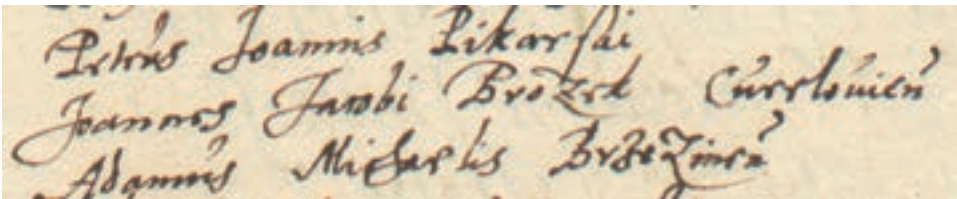 Petrus Joannis Pikarski
Joannes Jacobi Brożek Curelovien̄
Adamus Michaelis Brzezinen̄